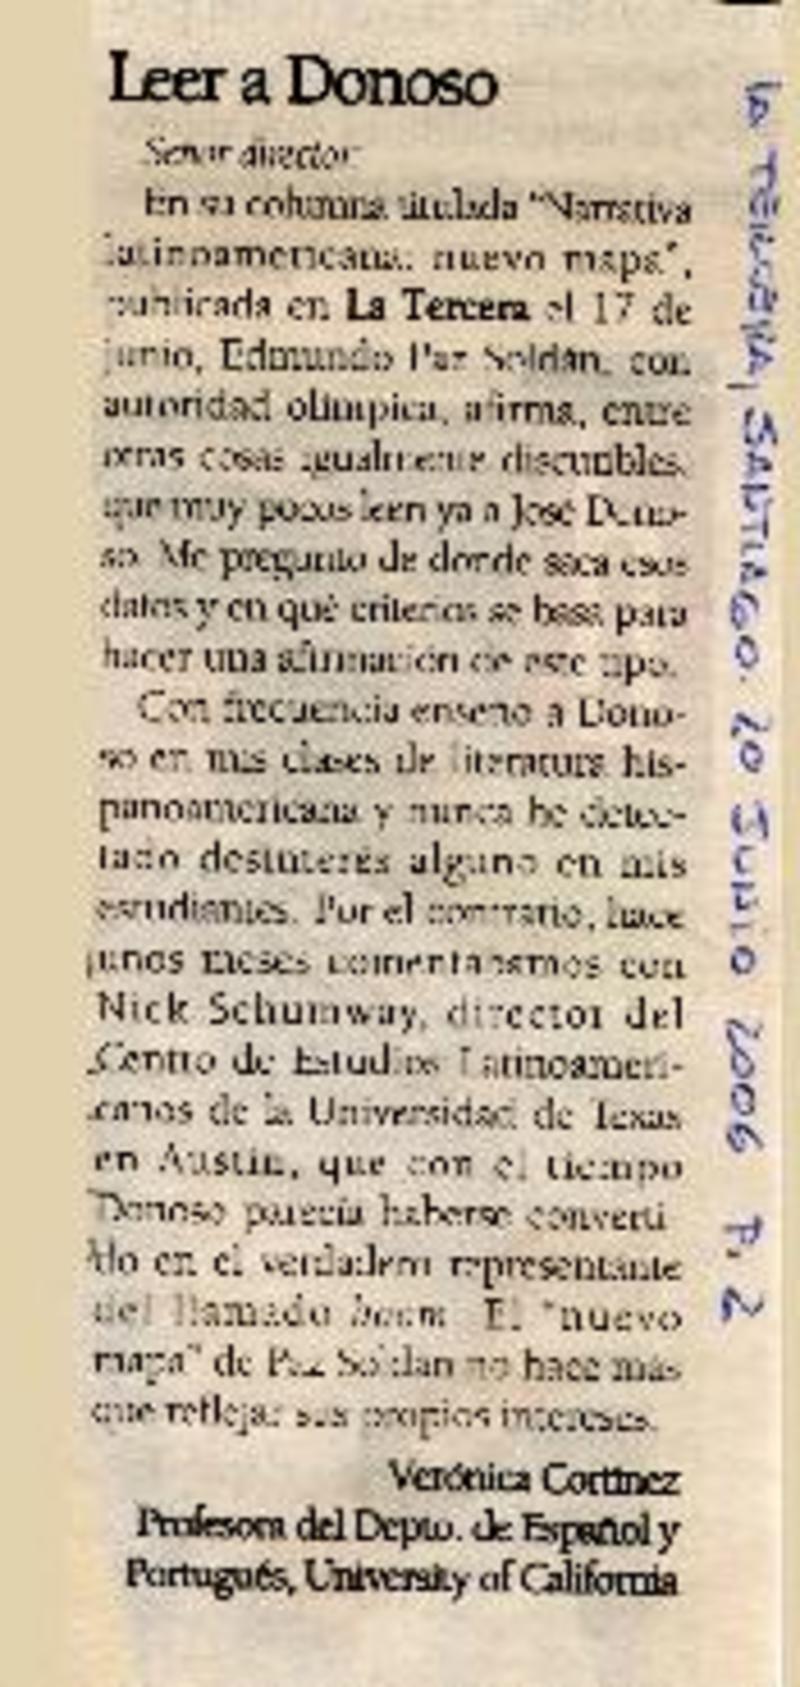 Leer a Donoso
Señor director:
En su columna titulada "Narrativa
latinoamericana: nuevo mapa",
publicada en La Tercera el 17 de
junio, Edmundo Paz Soldán, con
autoridad olímpica, afirma, entre
otras cosas igualmente discutibles,
que muy pocos leen ya a José Dono-
so. Me pregunto de dónde saca esos
datos y en qué criterios se basa para
hacer una afirmación de este tipo.
Con frecuencia enseño a Dono-
so en mis clases de literatura his-
panoamericana y nunca he detec-
tado desinterés alguno en mis
estudiantes. Por el contrario, hace
unos meses comentábamos con
Nick Schumway, director del
Centro de Estudios Latinoameri-
canos de la Universidad de Texas
en Austin, que con el tiempo
Donoso parecía haberse converti-
do en el verdadero representante
del llamado boom. El "nuevo
mapa" de Paz Soldán no hace más
que reflejar sus propios intereses.
Verónica Cortínez
Profesora del Depto. de Español y
Portugués, University of California
La TERCERA, SANTIAGO. 20 JUNIO 2006 P. 2